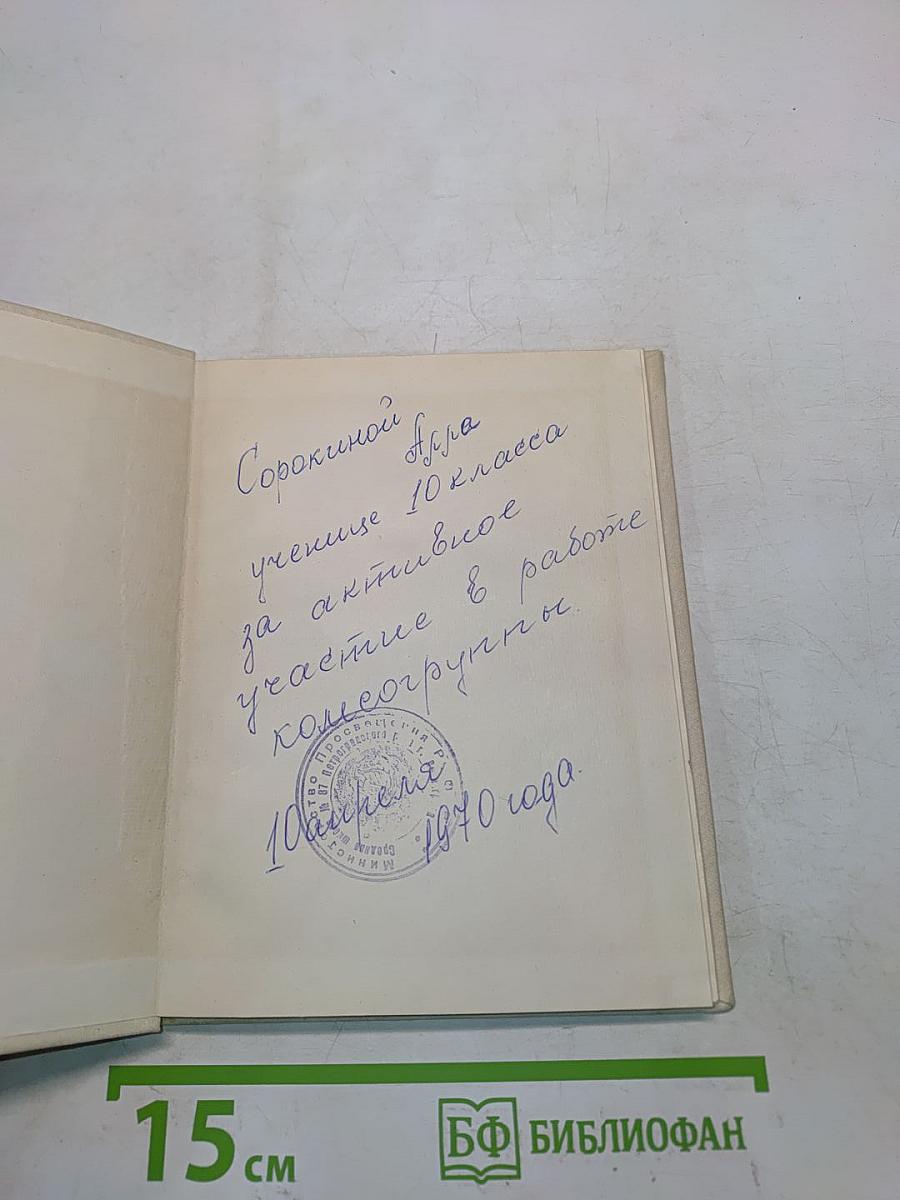 Сорокиной
Арра
ученице 10 класса
за активное
участие в работе
комсогруппы.
10 апреля
1970 года.
Министерство Просвещения Р
№ 87 Петроградского
Средняя шк
15 см
БФ БИБЛИОФАН